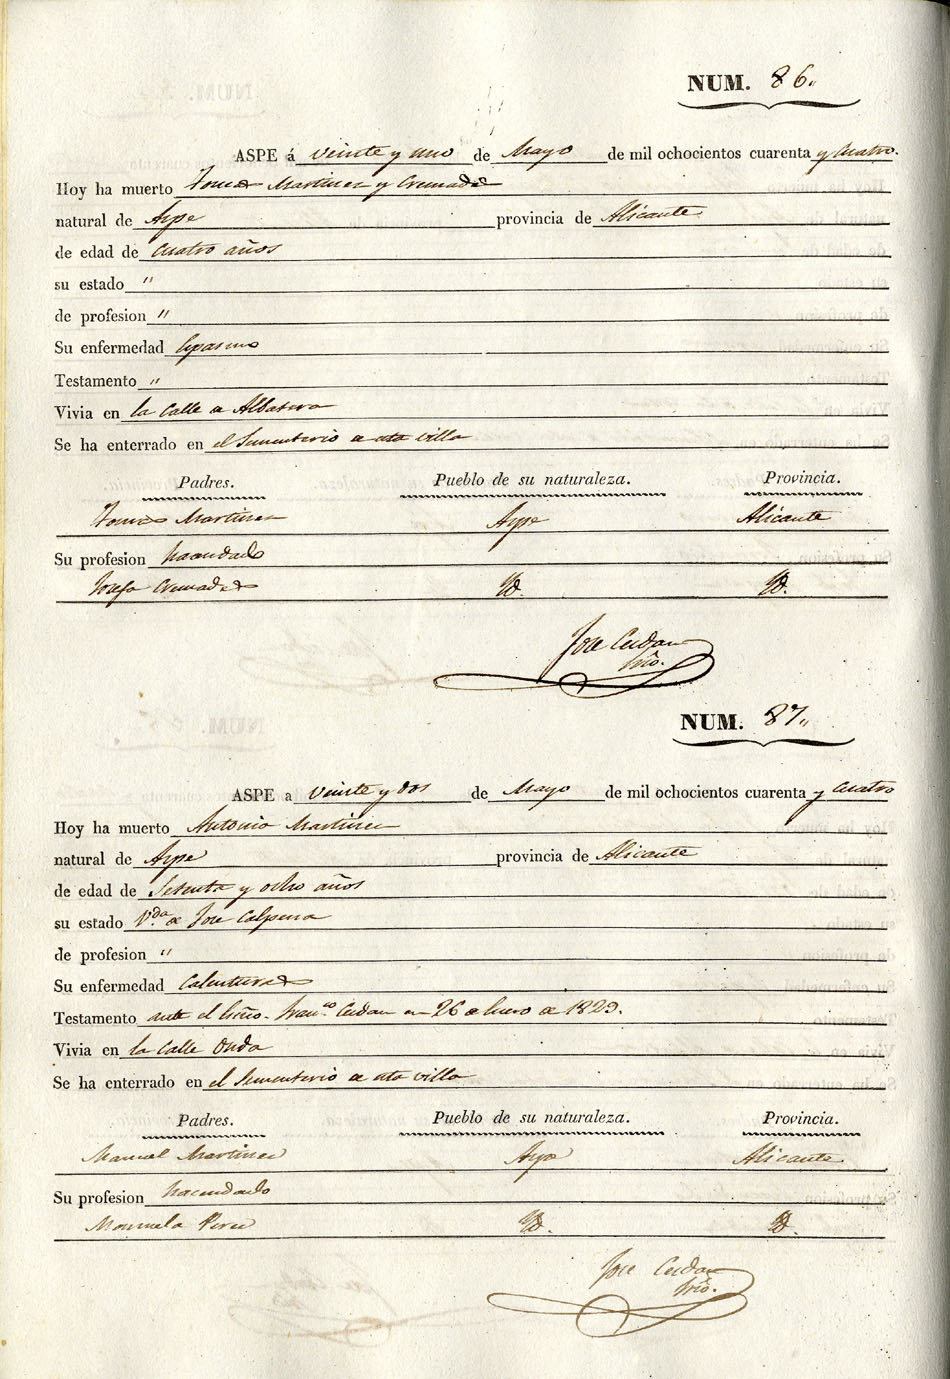 NUM. 86.,
ASPE á veinte y uno de Mayo de mil ochocientos cuarenta y Cuatro.
Hoy ha muerto Tomas Martinez y Cremades
natural de Aspe provincia de Alicante
de edad de Cuatro años
su estado "
de profesion "
Su enfermedad Espasmo
Testamento "
Vivia en la Calle de Albatera
Se ha enterrado en el Sementerio de esta villa
Padres. Pueblo de su naturaleza. Provincia.
Tomas Martinez Aspe Alicante
Su profesion hacendado
Josefa Cremades Yd. Yd.
Jose Cerdan
Srio.
NUM. 87.,
ASPE a veinte y dos de Mayo de mil ochocientos cuarenta y Cuatro
Hoy ha muerto Antonia Martinez
natural de Aspe provincia de Alicante
de edad de Setenta y ocho años
su estado V.da de Jose Calpena
de profesion "
Su enfermedad Calenturas
Testamento ante el Fran.co Cerdan en 26 de Enero de 1829.
Vivia en la Calle Onda
Se ha enterrado en el Sementerio de esta villa
Padres. Pueblo de su naturaleza. Provincia.
Manuel Martinez Aspe Alicante
Su profesion hacendado
Manuela Perez Yd. Yd.
Jose Cerdan
Srio.